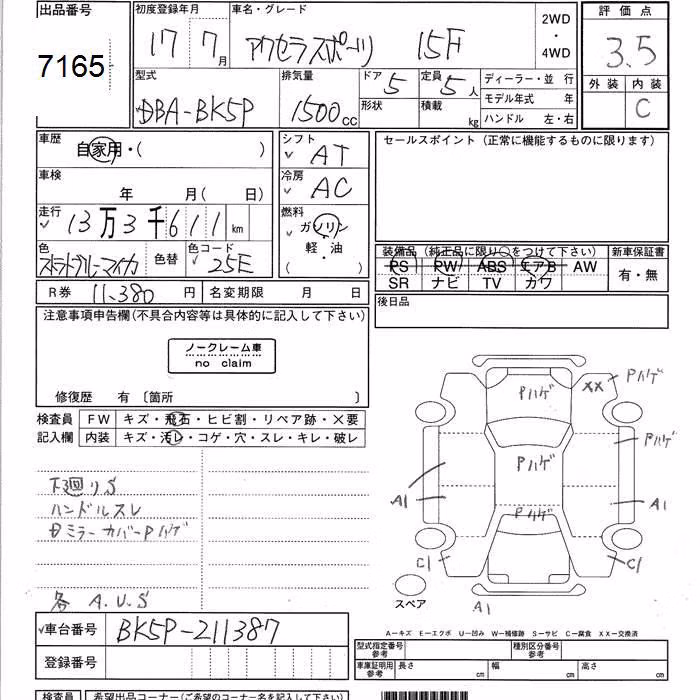 出品番号
7165
初度登録年月
17 7月
車名・グレード
アクセラスポーツ 15F
2WD
・
4WD
評価点
3.5
外装 内装
C
型式
DBA-BK5P
排気量
1500cc
ドア 5
形状
定員 5人
積載 kg
ディーラー・並 行
モデル年式 年
ハンドル 左・右
車歴
自家用・( )
シフト
AT
セールスポイント (正常に機能するものに限ります)
車検
年 月( 日)
冷房
AC
走行
13万3千611km
燃料
ガソリン
軽・油
( )
色
ストラトブルーマイカ
色替
色コード
25E
装備品 (純正品に限り○をつけて下さい)
PS PW ABS エアB AW
SR ナビ TV カワ
新車保証書
有・無
R券 11,380円
名変期限 月 日
後日品
注意事項申告欄(不具合内容等は具体的に記入して下さい)
ノークレーム車
no claim
修復歴 有 〔箇所 〕
検査員
記入欄
FW キズ・飛石・ヒビ割・リペア跡・×要
内装 キズ・汚レ・コゲ・穴・スレ・キレ・破レ
下廻りS
ハンドルスレ
ミラーカバーPハゲ
各 A.U.S
XX Pハゲ
Pハゲ
Pハゲ
Pハゲ
Pハゲ
A1
A1
C1
C1
スペア
A1
車台番号
BK5P-211387
登録番号
A―キズ E―エクボ U―凹み W―補修跡 S―サビ C―腐食 XX―交換済
型式指定番号
参考
種別区分番号
参考
車庫証明用
参考
長さ cm
幅 cm
高さ cm
検査員
希望出品コーナー(ご希望のコーナー名を記入して下さい)